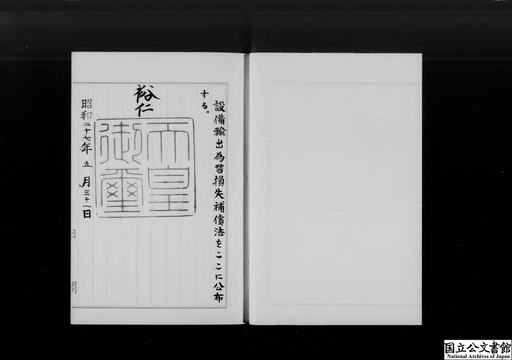 設備輸出為替損失補償法をここに公布
する。
裕仁
天皇
御璽
昭和二十七年五月三十一日
国立公文書館
National Archives of Japan